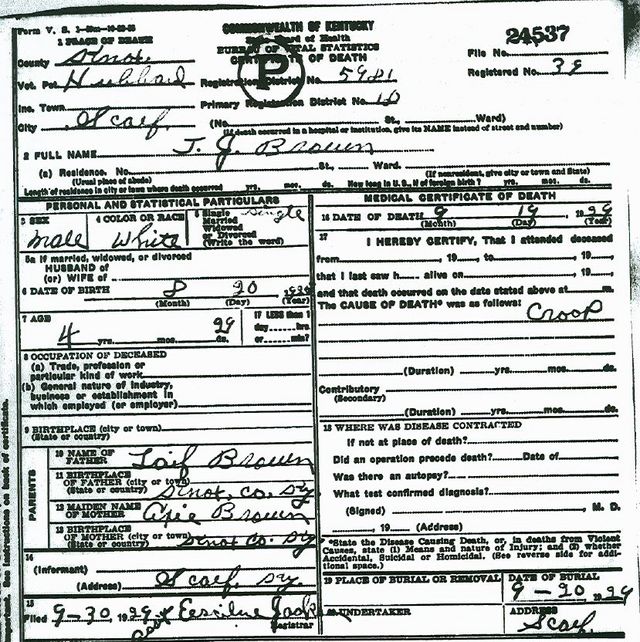 Form V. S. 1
COMMONWEALTH OF KENTUCKY
State Board of Health
BUREAU OF VITAL STATISTICS
CERTIFICATE OF DEATH
P
24537
File No.
Registered No. 39
1 PLACE OF DEATH
County Knox
Vot. Pct. Hubbard Registration District No. 5981
Inc. Town Primary Registration District No. 10
City Scalf (No. St., Ward)
(If death occurred in a hospital or institution, give its NAME instead of street and number)
2 FULL NAME T. J. Brown
(a) Residence. No. St., Ward.
(Usual place of abode) (If nonresident, give city or town and State)
Length of residence in city or town where death occurred yrs. mos. ds. How long in U.S., if of foreign birth? yrs. mos. ds.
PERSONAL AND STATISTICAL PARTICULARS
3 SEX
male
4 COLOR OR RACE
White
5 Single
Married
Widowed
or Divorced
(Write the word)
Single
5a If married, widowed, or divorced
HUSBAND of
(or) WIFE of
6 DATE OF BIRTH 8 20
(Month) (Day) (Year)
7 AGE
4 yrs. mos. 29 ds.
IF LESS than 1
day hrs
or min?
8 OCCUPATION OF DECEASED
(a) Trade, profession or
particular kind of work
(b) General nature of industry,
business or establishment in
which employed (or employer)
9 BIRTHPLACE (city or town)
(State or country)
PARENTS
10 NAME OF
FATHER Brown
11 BIRTHPLACE
OF FATHER (city or town)
(State or country) Knox co. Ky
12 MAIDEN NAME
OF MOTHER Brown
13 BIRTHPLACE
OF MOTHER (city or town)
(State or country) Knox co. Ky
14
(Informant)
(Address) Scalf Ky
15
Filed 9-30, 1929
Registrar
MEDICAL CERTIFICATE OF DEATH
16 DATE OF DEATH 9 19 1929
(Month) (Day) (Year)
17
I HEREBY CERTIFY, That I attended deceased
from , 19 , to , 19 ,
that I last saw h alive on , 19 ,
and that death occurred on the date stated above at m.
The CAUSE OF DEATH* was as follows:
Croop
(Duration) yrs. mos. ds.
Contributory
(Secondary)
(Duration) yrs. mos. ds.
18 WHERE WAS DISEASE CONTRACTED
If not at place of death?
Did an operation precede death? Date of
Was there an autopsy?
What test confirmed diagnosis?
(Signed) , M. D.
, 19 (Address)
*State the Disease Causing Death, or, in deaths from Violent
Causes, state (1) Means and nature of Injury; and (2) whether
Accidental, Suicidal or Homicidal. (See reverse side for addi-
tional space.)
19 PLACE OF BURIAL OR REMOVAL
DATE OF BURIAL
9-20 1929
20 UNDERTAKER
ADDRESS
Scalf
See instructions on back of certificate.